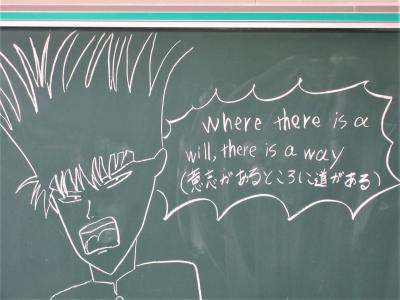 where there is a
will, there is a way
(意志があるところに道がある)